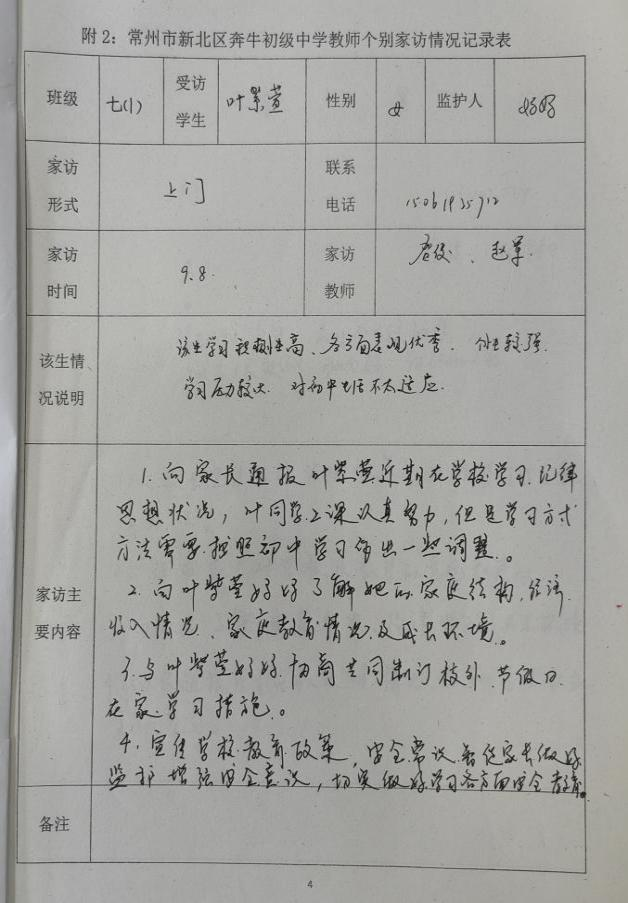 附2：常州市新北区奔牛初级中学教师个别家访情况记录表
班级 七(1) 受访学生 叶紫萱 性别 女 监护人 妈妈
家访形式 上门 联系电话 15061935712
家访时间 9.8. 家访教师 唐俊、赵军.
该生情况说明
该生学习积极性高、各方面表现优秀. 个性较强.
学习压力较大. 对初中生活不太适应.
家访主要内容
1.向家长通报叶紫萱近期在学校学习.纪律
思想状况，叶同学上课认真努力，但是学习方式
方法需要按照初中学习作出一些调整。
2.向叶紫萱妈妈了解她的家庭结构，经济
收入情况、家庭教育情况及成长环境。
3.与叶紫萱妈妈协商共同制订校外.节假日.
在家学习措施。
4.宣传学校教育政策，安全常识.督促家长做好
监护增强安全意识，切实做好学习各方面安全教育。
备注
4